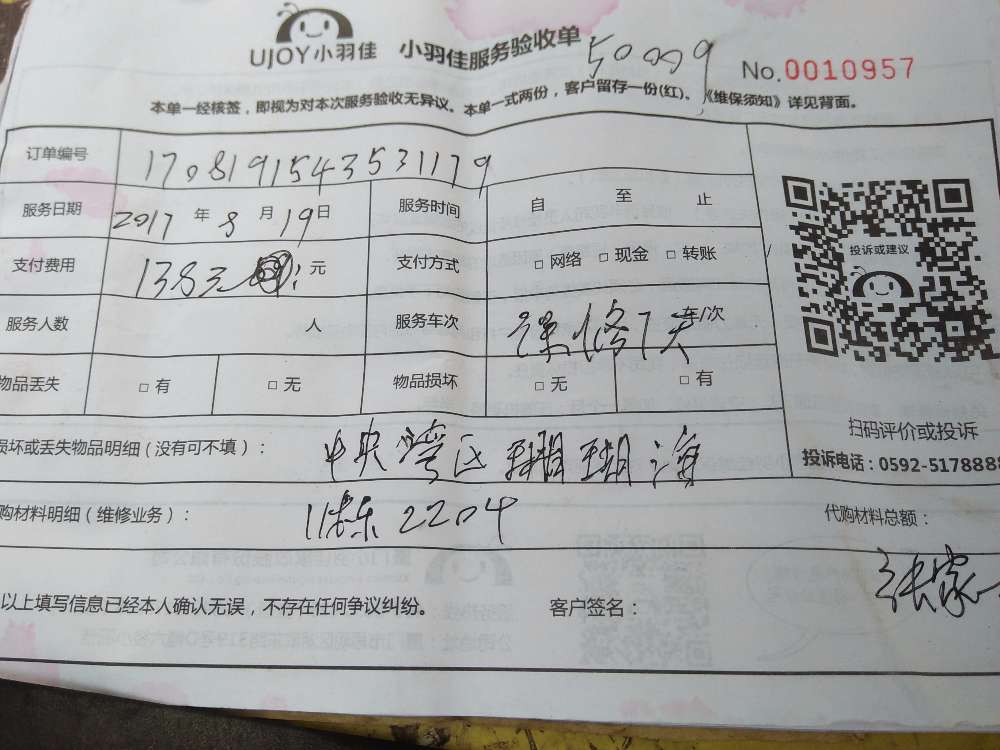 UJOY小羽佳 小羽佳服务验收单 50009 No.0010957
本单一经核签，即视为对本次服务验收无异议。本单一式两份，客户留存一份(红)。《维保须知》详见背面。
订单编号 1708191543531179
服务日期 2017 年 8 月 19 日 服务时间 自 至 止
支付费用 1383元 元 支付方式 □ 网络 □ 现金 □ 转账
投诉或建议
服务人数 人 服务车次 保修7天 车/次
物品丢失 □ 有 □ 无 物品损坏 □ 无 □ 有
损坏或丢失物品明细（没有可不填）： 中央湾区珊瑚海
扫码评价或投诉
投诉电话：0592-5178888
购材料明细（维修业务）： 11栋2204 代购材料总额：
以上填写信息已经本人确认无误，不存在任何争议纠纷。 客户签名： 张家